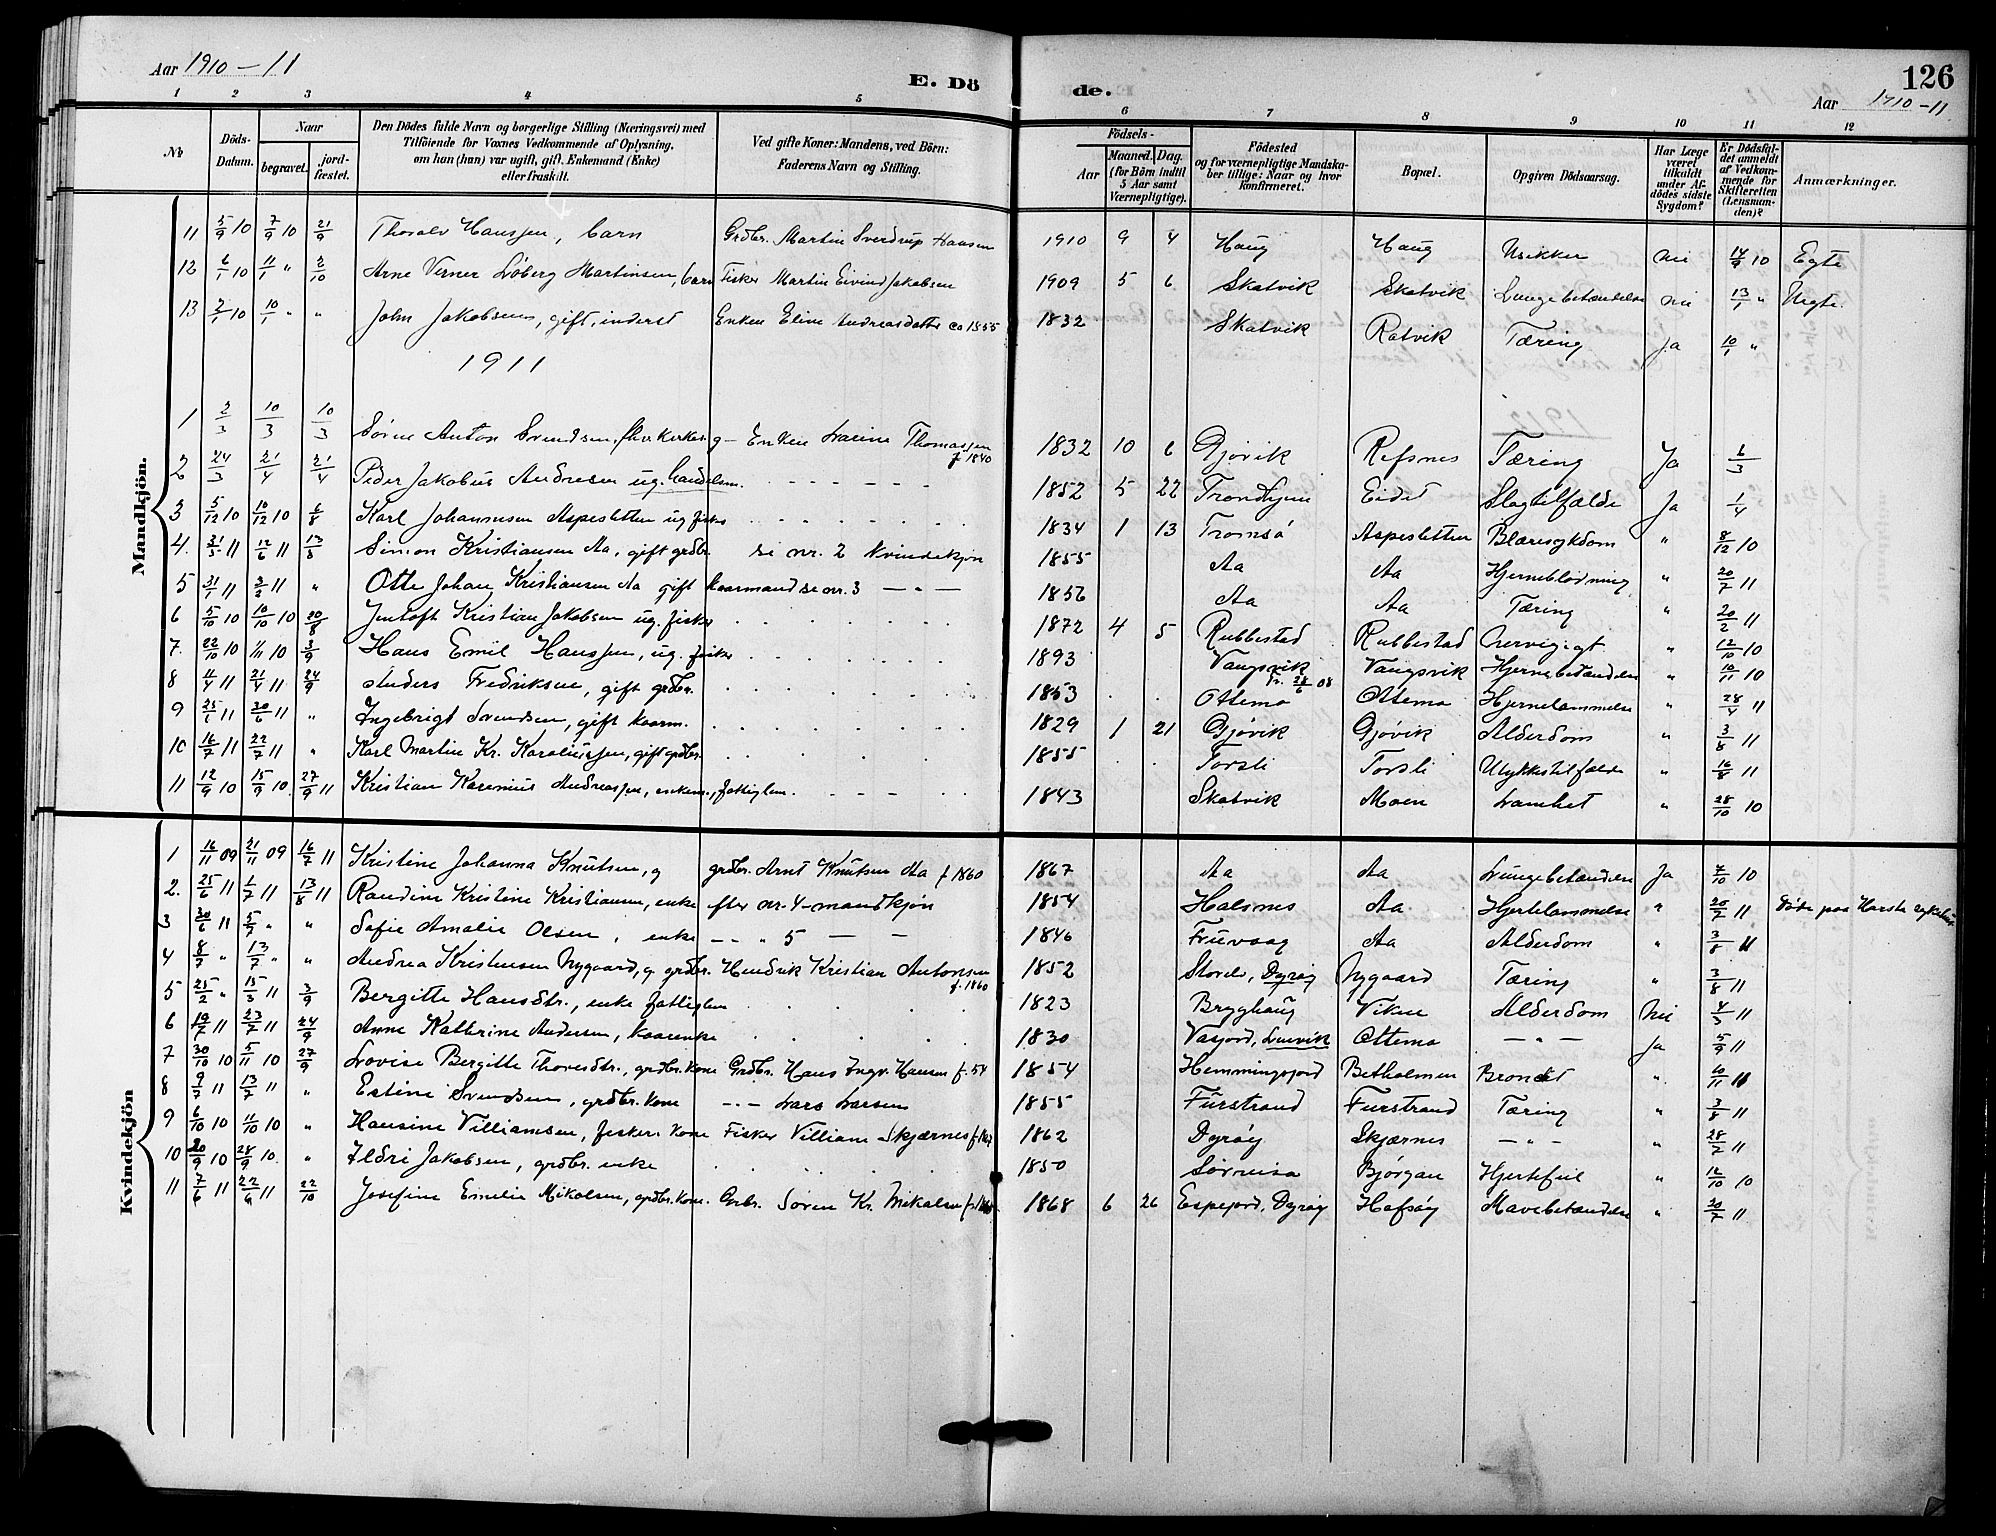 Aar 1910-11
E. Dö
de.
126
Aar 1910-11
1 2 3 4 5 6 7 8 9 10 11 12
No.
Döds-Datum.
Naar
begravet.
jordfæstet.
Den Dödes fulde Navn og borgerlige Stilling (Næringsvei) med Tilföiende for Voxnes Vedkommende af Oplysning, om han (hun) var ugift, gift, Enkemand (Enke) eller fraskilt.
Ved gifte Koner: Mandens, ved Börn: Faderens Navn og Stilling.
Födsels-
Aar
Maaned. Dag.
(for Börn indtil 5 Aar samt Værnepligtige).
Födested og for værnepligtige Mandskaber tillige: Naar og hvor konfirmeret.
Bopæl.
Opgiven Dödsaarsag.
Har Læge været tilkaldt under Afdödes sidste Sygdom?
Er Dödsfaldet anmeldt af Vedkommende for Skifteretten (Lensmanden)?
Anmærkninger.
Mandkjön.
11 5/9 10 7/9 10 21/9 Thoralv Hanssen, barn Grdbr. Martin Sverdrup Hansen 1910 9 4 Haug Haug Usikker nei 14/9 10 Egte
12 6/1 10 11/1 " 2/10 Arne Verner Løberg Martinsen, barn Fisker Martin Eivind Jakobsen 1909 5 6 Skatvik Skatvik Lungebetændelse nei 13/1 " Uegte
13 2/1 10 10/1 " " John Jakobsen, gift, inderst Enken Eline Andreasdatter ca 1855 1832 Skatvik Ratvik Tæring Ja 10/1 "
1911
1 2/3 10/3 10/3 Sören Anton Svendsen, g - Enken Lavine Thomassen f 1840 1832 10 6 Gjøvik Refsnes Tæring Ja 6/3
2 24/3 21/4 21/4 Peder Jakobus Andresen ug. handelsm. 1852 5 22 Trondhjem Eidet Slagtilfælde Ja 1/4
3 5/12 10 10/12 10 6/8 Karl Johannesen Aspesletten ug fisker 1834 1 13 Tromsö Aspesletten Blæresykdom " 8/12 10
4. 31/5 11 12/6 11 13/8 Simon Kristiansen Aa, gift grdbr. se nr. 2 Kvindekjön 1855 Aa Aa Hjerneblödning " 20/7 11
5 31/1 11 2/2 11 " Otte Johan Kristiansen Aa gift kaarmand se nr. 3 - " - 1856 Aa Aa Tæring " 20/2 11
6 5/10 10 10/10 10 20/8 Jentoft Kristian Jakobsen ug. fisker 1872 4 5 Rubbestad Rubbestad Nervegigt " 12/10 10
7. 22/10 10 1/11 10 3/9 Hans Emil Hanssen, ug. fisker 1893 Vangsvik 28/6 08 Vangsvik Hjernebetændelse " 10/11 10
8 11/4 11 21/4 11 24/9 Anders Fredriksen, gift grdbr. 1853 Ottemo Ottemo Hjernelammelse " 28/4 11
9 25/6 11 30/6 11 " Ingebrigt Svendsen, gift kaarm. 1829 1 21 Gjøvik Gjøvik Alderdom " 3/8 11
10 16/7 11 22/7 11 " Karl Martin Kr. Karoliussen, gift grdbr. 1855 Torsli Torsli Ulykkestilfælde " 16/8 11
11 12/9 10 15/9 10. 27/9 11 Kristian Karenius Andreassen, enkem., fattiglem. 1843 Skatvik Moen Lamhet " 28/10 10
Kvindekjön
1 16/11 09 21/11 09 16/7 11 Kristine Johanna Knutsen, g grdbr. Arnt Knutsen Aa f 1860 1867 Aa Aa Lungebetændelse Ja 7/10 10
2. 25/6 11 1/7 11 13/8 11 Randine Kristine Kristiansen, enke efter nr. 4 - mandkjøn 1854 Halsnes Aa Hjertelammelse " 20/7 11 Döde paa Harsta sykehus
3 30/6 11 5/7 " " Sofie Amalie Olsen, enke - " - " 5 - - 1846 Fruvaag Aa Alderdom " 3/8 11
4 8/7 " 13/7 " " Andrea Kristensen Nygaard, g. grdbr. Hendrik Kristian Antonsen f. 1860 1852 Dyrøy Nygaard Tæring " 3/8 11
5 25/2 " 15/3 11 3/9 Bergitte Hansdtr., enke fattiglem 1823 Brygghaug Viken Alderdom Nei 4/3 11
6 19/7 11 23/7 11 24/9 Anne Kathrine Andersen, kaarenke 1830 Vasjord, Lenvik Ottemo - " - Ja 5/9 11
7 30/10 10 5/11 10 27/9 Lovise Bergitte Thoresdtr., grdbr. kone Grdbr. Hans Ingv. Hansen f. 54 1854 Hemmingsjord Betholmen Bronchit " 10/11 11
8 9/7 11 13/7 11 " Estine Svendsen, grdbr. kone - " - Lars Larsen 1855 Furstrand Furstrand Tæring " 3/8 11
9 6/10 10 11/10 10 " Hansine Villiamsen, fisker. kone Fisker Villiam Skjærnes 1862 Dyrøy Skjærnes - " - " 28/7 11
10 20/9 10 28/9 10. " Ildri Jakobsen, grdbr. enke 1850 Sörreisa Bjørgan Hjertefeil " 12/10 10
11 7/6 11 22/6 11 22/10 Josefine Emelie Mikalsen, grdbr. kone. Grbr. Sören Kr. Mikalsen 1868 6 26 Espejord, Dyrøy Hofsøy Mavebetændelse " 20/7 11